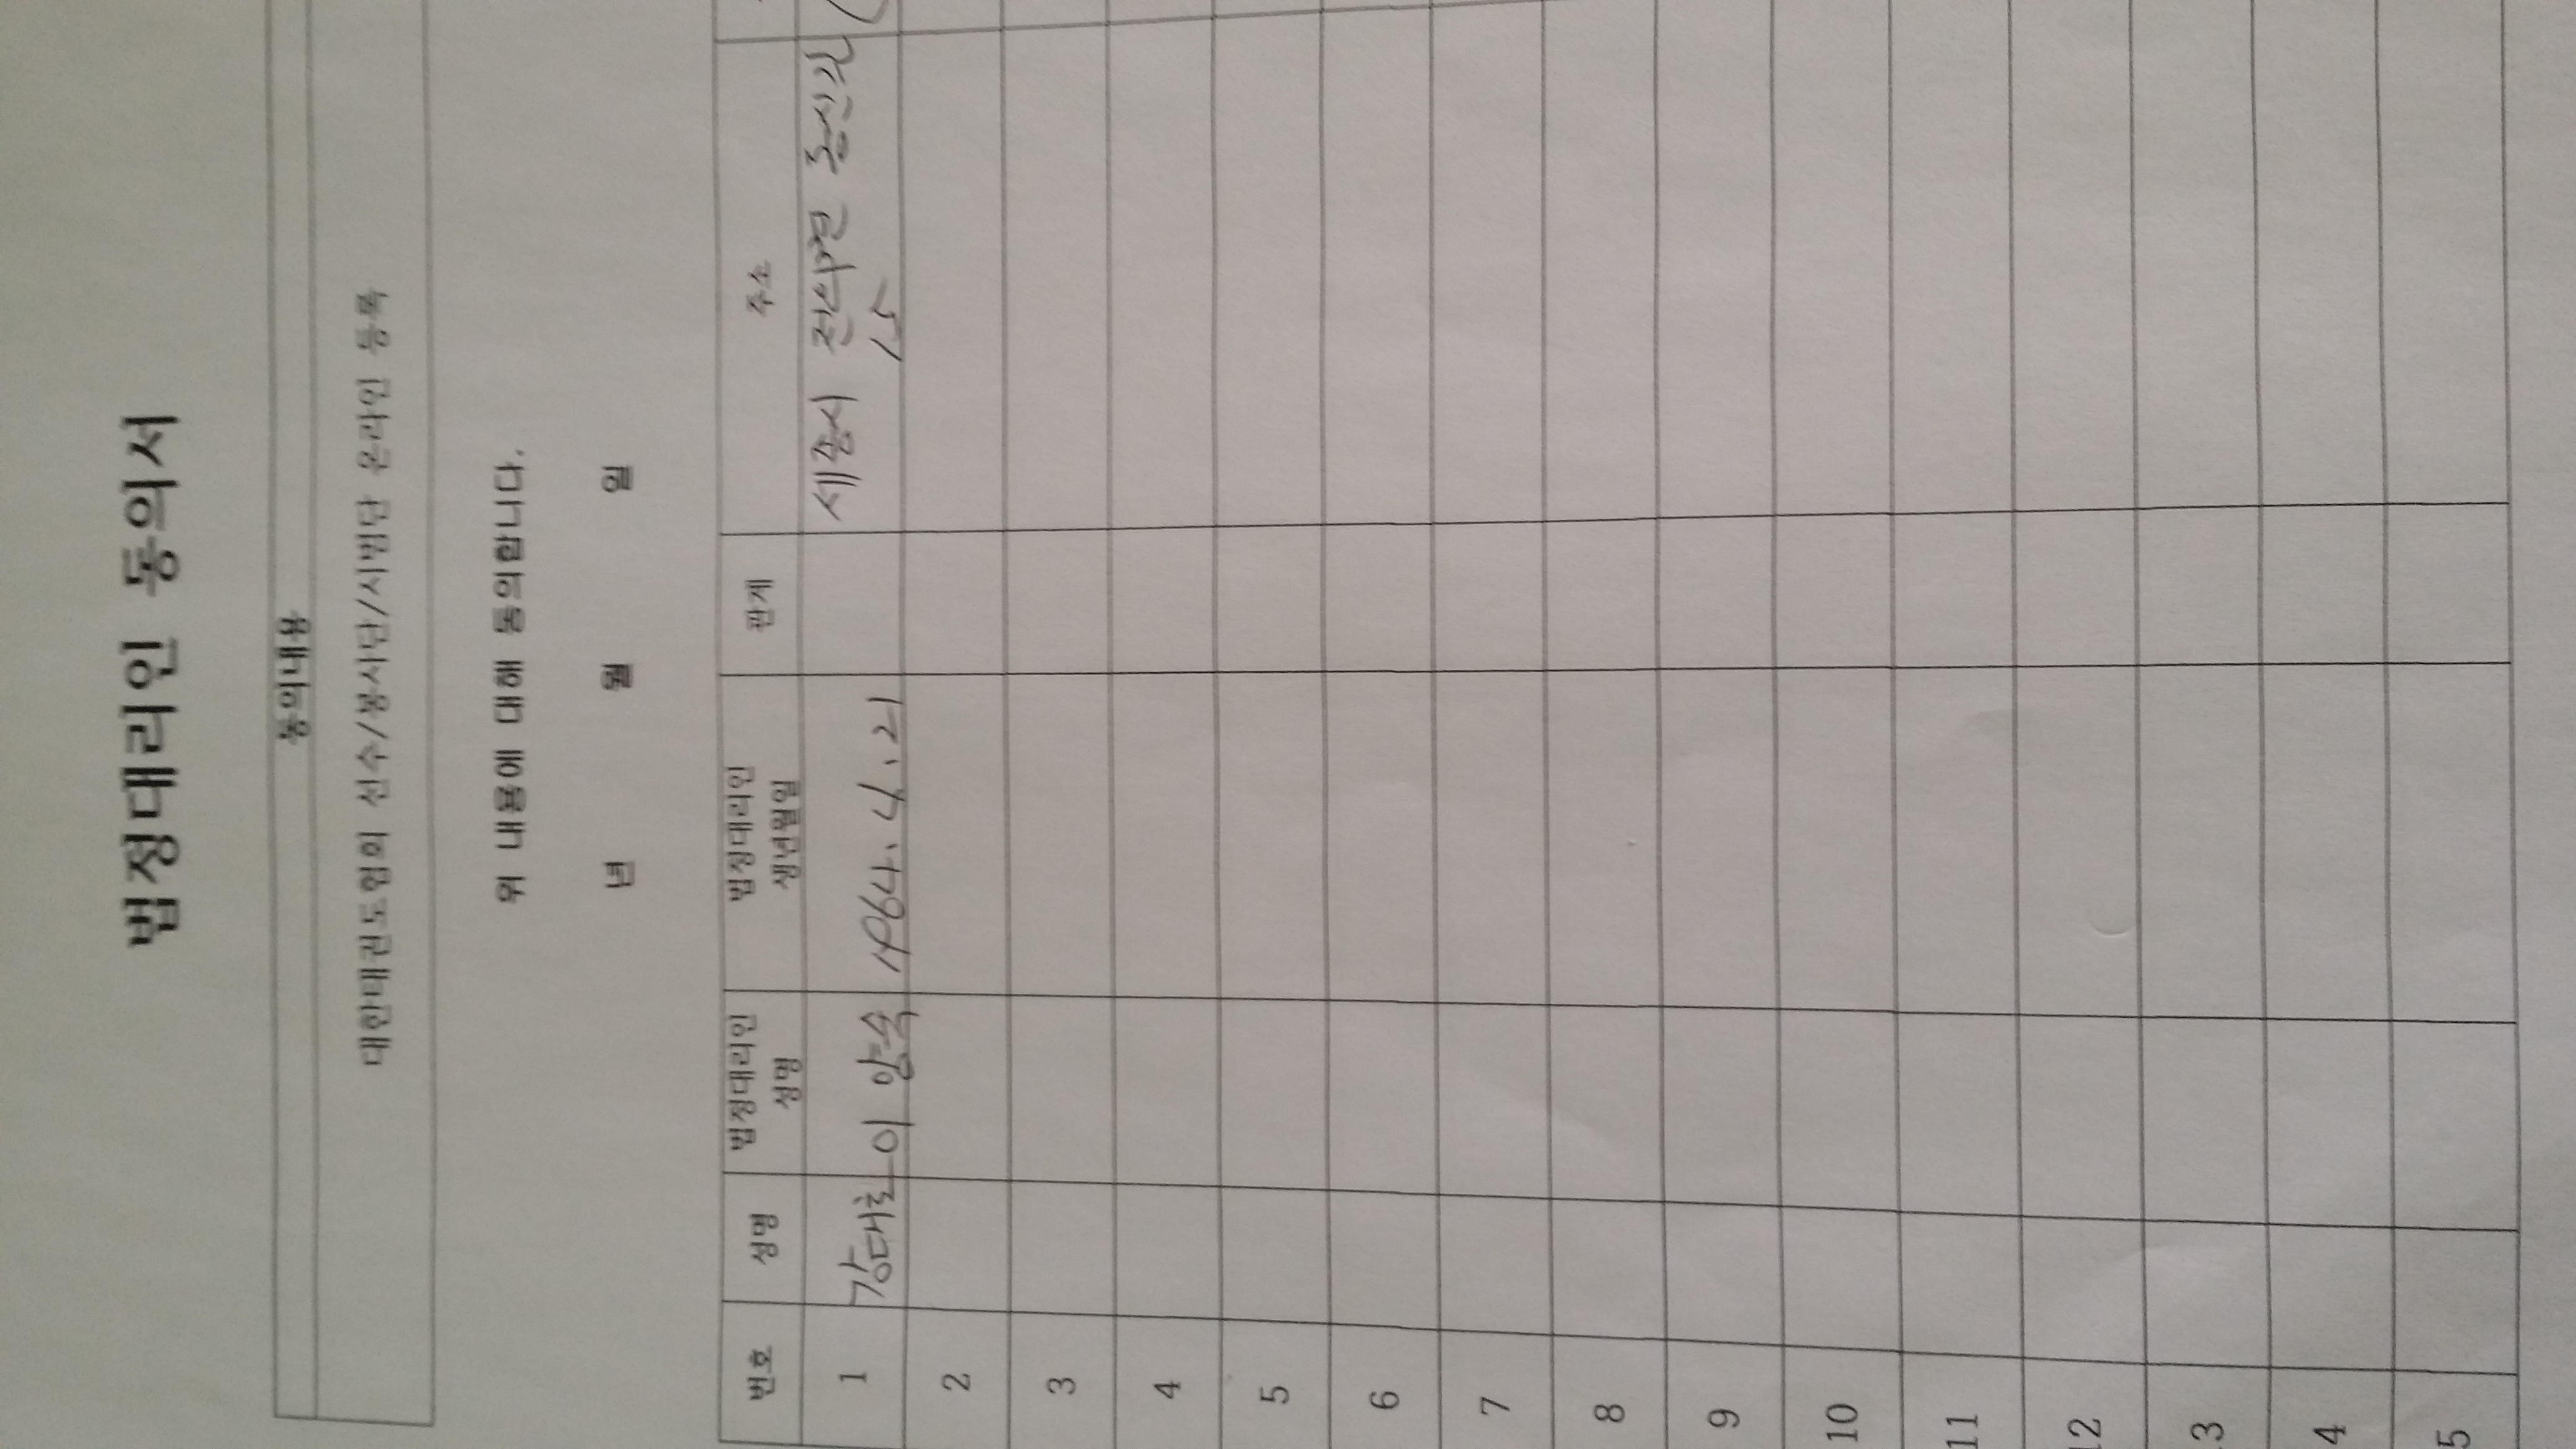 법정대리인 동의서
동의내용
대한태권도협회 선수/봉사단/시범단 온라인 등록
위 내용에 대해 동의합니다.
년 월 일
번호 성명 법정대리인 성명 법정대리인 생년월일 관계 주소
1 강대호 이양숙 1964. 4. 21 세종시 전의면
15
2
3
4
5
6
7
8
9
10
11
12
3
4
5